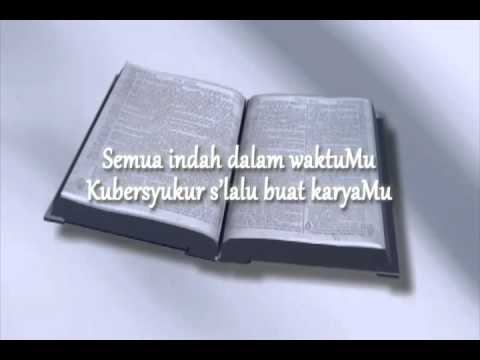 Semua indah dalam waktuMu
Kubersyukur s'lalu buat karyaMu